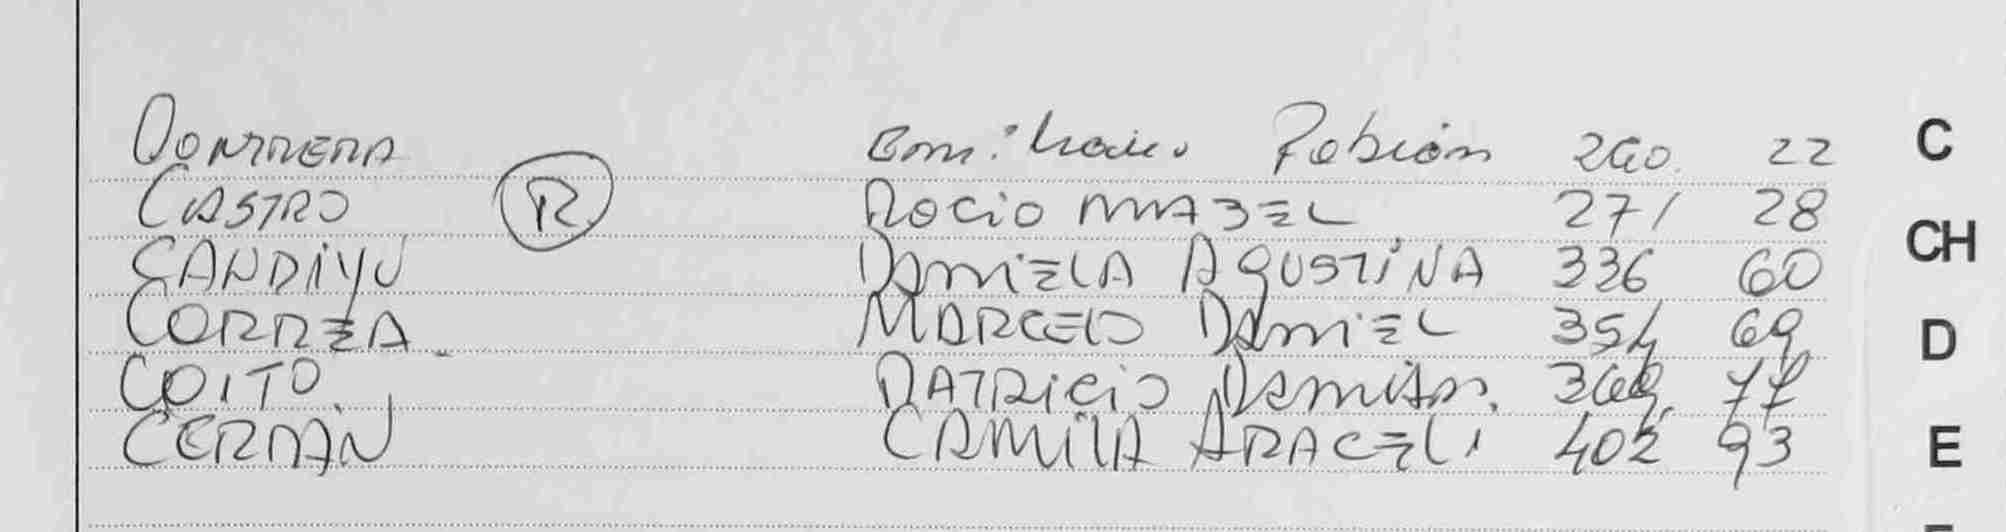 Emiliano Fabián 260. 22 C
CASTRO R ROCIO MABEL 271 28
CANDIYÚ DANIELA AGUSTINA 336 60 CH
CORREA MARCELO DANIEL 354 69 D
COITO PATRICIO DAMIÁN. 77
CERDÁN CAMILA ARACELI 402 93 E